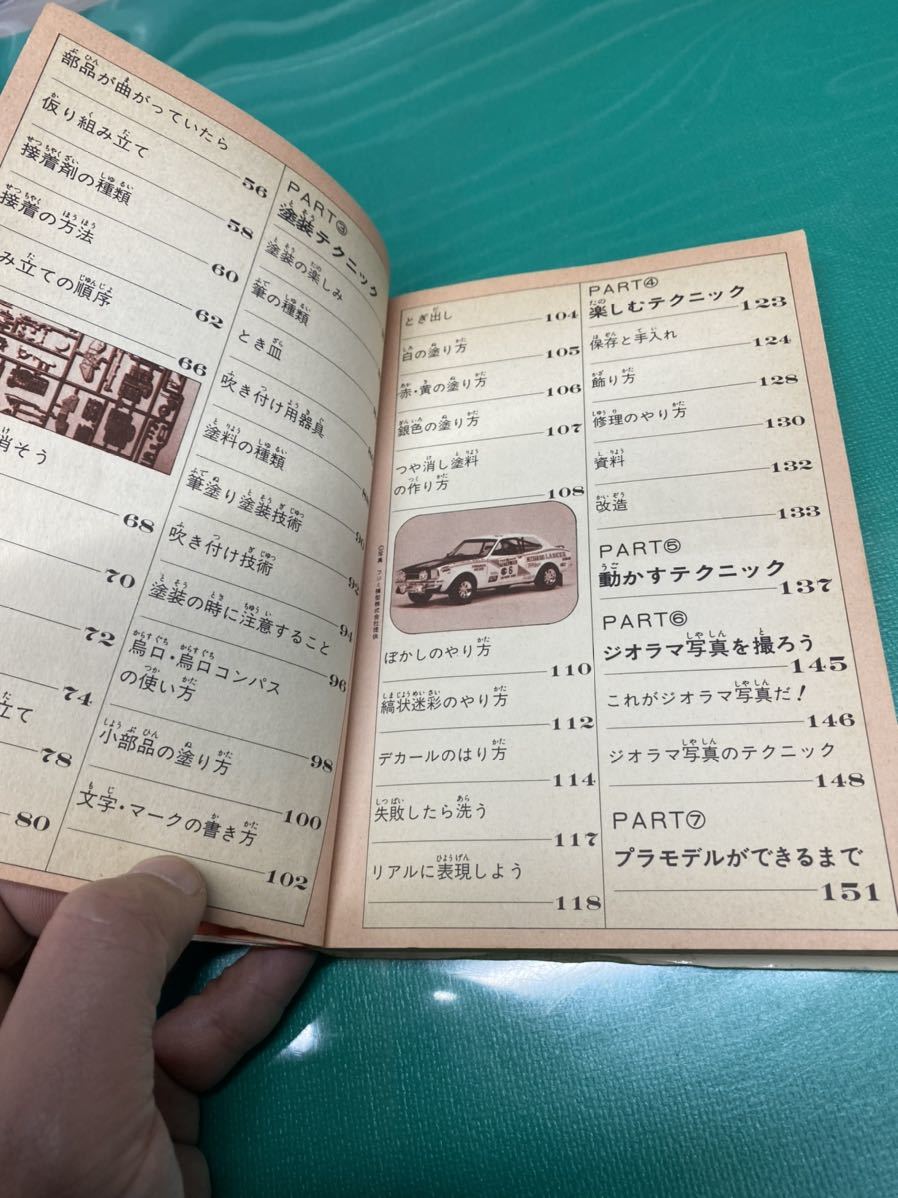 部品が曲がっていたら
56
仮り組み立て
58
接着剤の種類
60
接着の方法
62
み立ての順序
66
消そう
68
70
72
74
立て
78
80
PART③
塗装テクニック
塗装の楽しみ
筆の種類
とき皿
吹き付け用器具
塗料の種類
筆塗り塗装技術
90
吹き付け技術
92
塗装の時に注意すること
94
烏口・烏口コンパス
の使い方
96
98
小部品の塗り方
100
文字・マークの書き方
102
とぎ出し
104
白の塗り方
105
赤・黄の塗り方
106
銀色の塗り方
107
つや消し塗料
の作り方
108
ぼかしのやり方
110
縞状迷彩のやり方
112
デカールのはり方
114
失敗したら洗う
117
リアルに表現しよう
118
PART④
楽しむテクニック
123
保存と手入れ
124
飾り方
128
修理のやり方
130
資料
132
改造
133
PART⑤
動かすテクニック
137
PART⑥
ジオラマ写真を撮ろう
145
これがジオラマ写真だ!
146
ジオラマ写真のテクニック
148
PART⑦
プラモデルができるまで
151